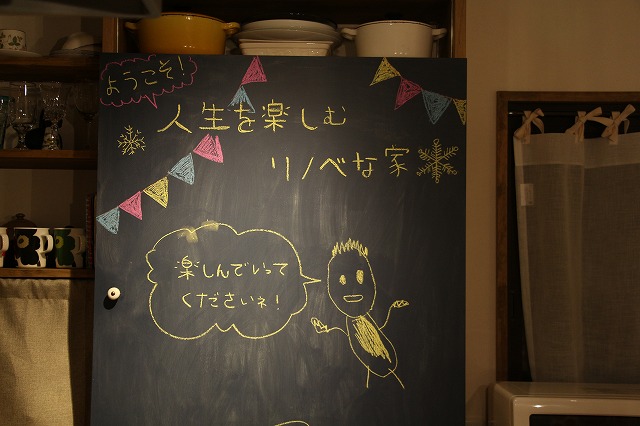 ようこそ!
人生を楽しむ
リノベな家
楽しんでいって
くださいネ!